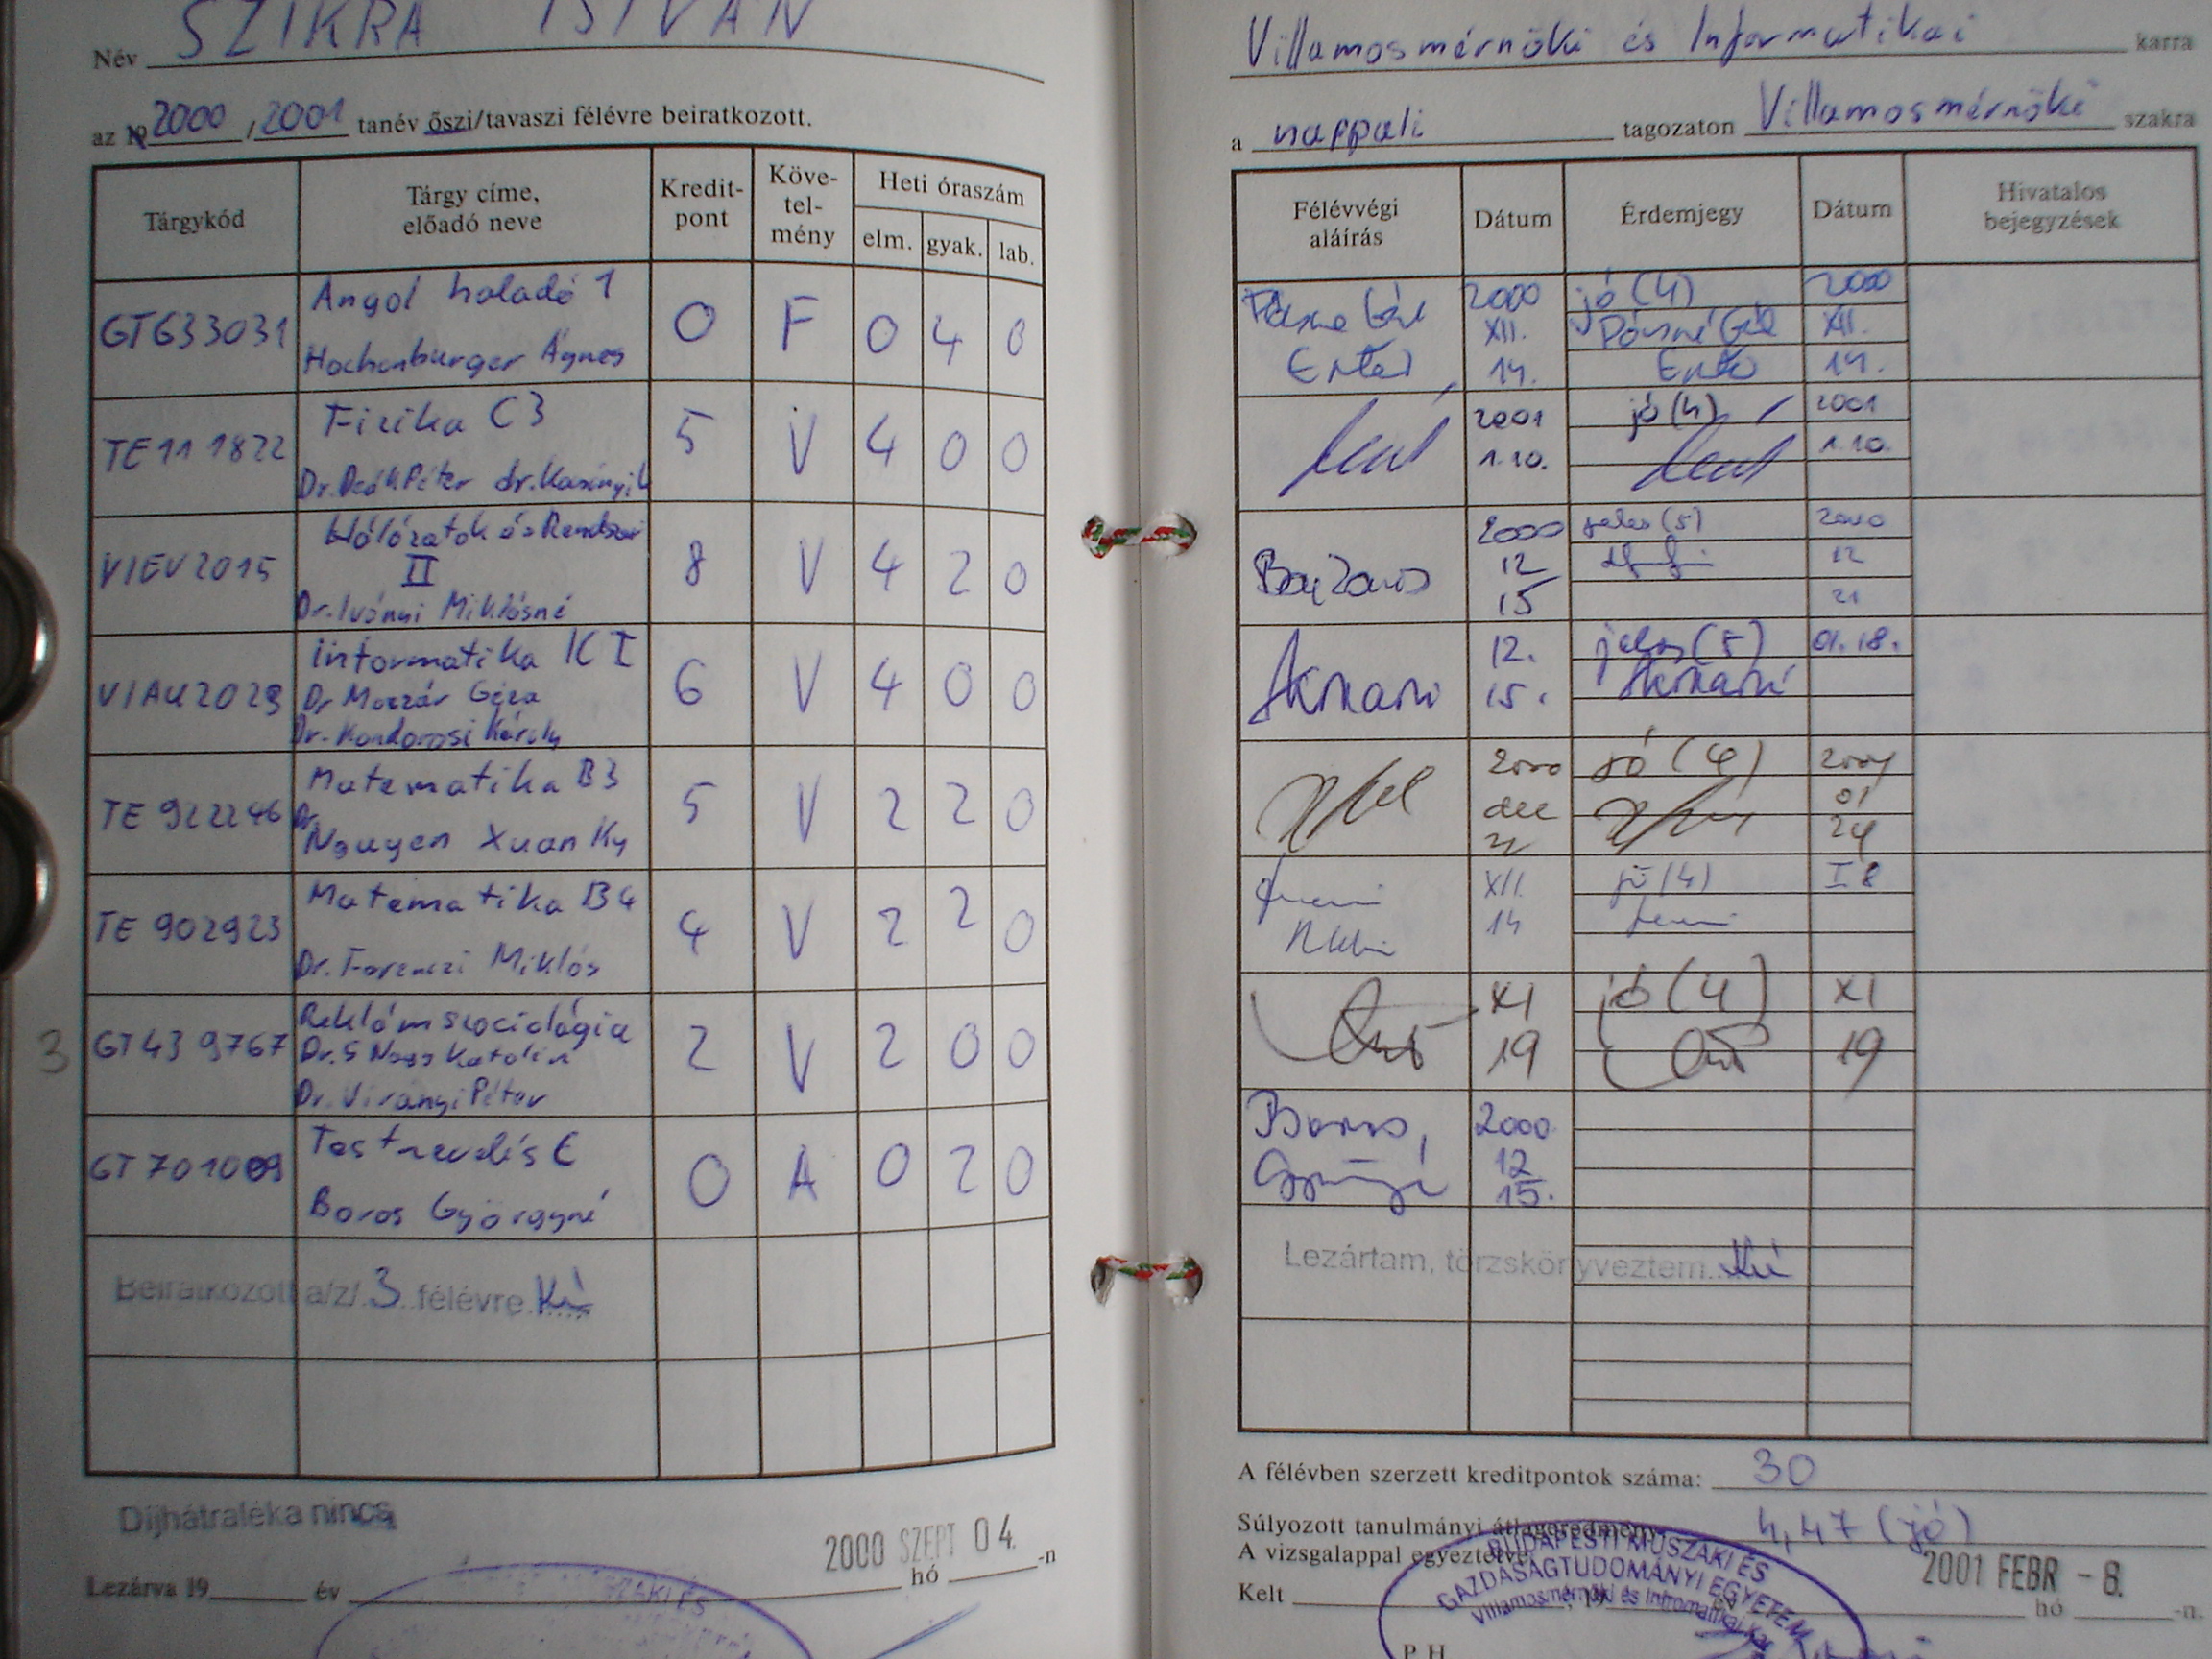 Név SZIKRA ISTVÁN
az 19 2000 / 2001 tanév őszi/tavaszi félévre beiratkozott.
Tárgykód
Tárgy címe,
előadó neve
Kredit-
pont
Köve-
tel-
mény
Heti óraszám
elm. gyak. lab.
GT633031
Angol haladó 1
Hochenburger Ágnes
0 F 0 4 0
TE11 1822
Fizika C3
Dr. Deák Péter dr.
5 V 4 0 0
VIEV2015
Hálózatok és Rendszer
II
Dr. Iványi Miklósné
8 V 4 2 0
VIAU2029
Informatika K I
Dr Moczár Géza
Dr. Kondorosi Károly
6 V 4 0 0
TE 922246
Matematika B3
Dr.
Nguyen Xuan Ky
5 V 2 2 0
TE 902923
Matematika B4
Dr. Ferenczi Miklós
4 V 2 2 0
3
GT43 9767
Reklámszociológia
Dr. S Nagy Katalin
Dr. Virányi Péter
2 V 2 0 0
GT701009
Testnevelés E
Boros Györgyné
0 A 0 2 0
Beiratkozott a/z/ 3 félévre
Díjhátraléka nincs
2000 SZEPT 04.
Lezárva 19 év hó -n
Villamosmérnöki és Informatikai karra
a nappali tagozaton Villamosmérnöki szakra
Félévvégi
aláírás
Dátum
Érdemjegy
Dátum
Hivatalos
bejegyzések
2000 jó (4) 2000
XII. XII.
14. 14.
2001 jó (4) 2001
1.10. 1.10.
2000 jeles (5) 2000
12 12
15 21
12. jeles (5) 01.18.
15.
2000 jó (4) 2001
dec 01
24
XII. jó (4) I 8
14
XI jó (4) XI
19 19
Boros 2000
12
15.
Lezártam, törzskönyveztem
A félévben szerzett kreditpontok száma: 30
Súlyozott tanulmányi átlageredmény: 4,47 (jó)
A vizsgalappal egyeztetve
2001 FEBR - 8.
Kelt , 19 év hó -n.
P. H.
BUDAPESTI MŰSZAKI ÉS
GAZDASÁGTUDOMÁNYI EGYETEM
Villamosmérnöki és Informatikai Kar
SZAKI ÉS